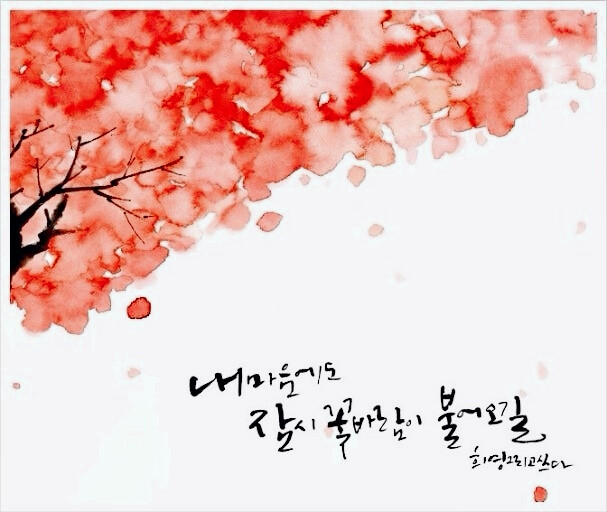 내 마음에도
잠시 꽃바람이 불어오길
희영그리고쓰다